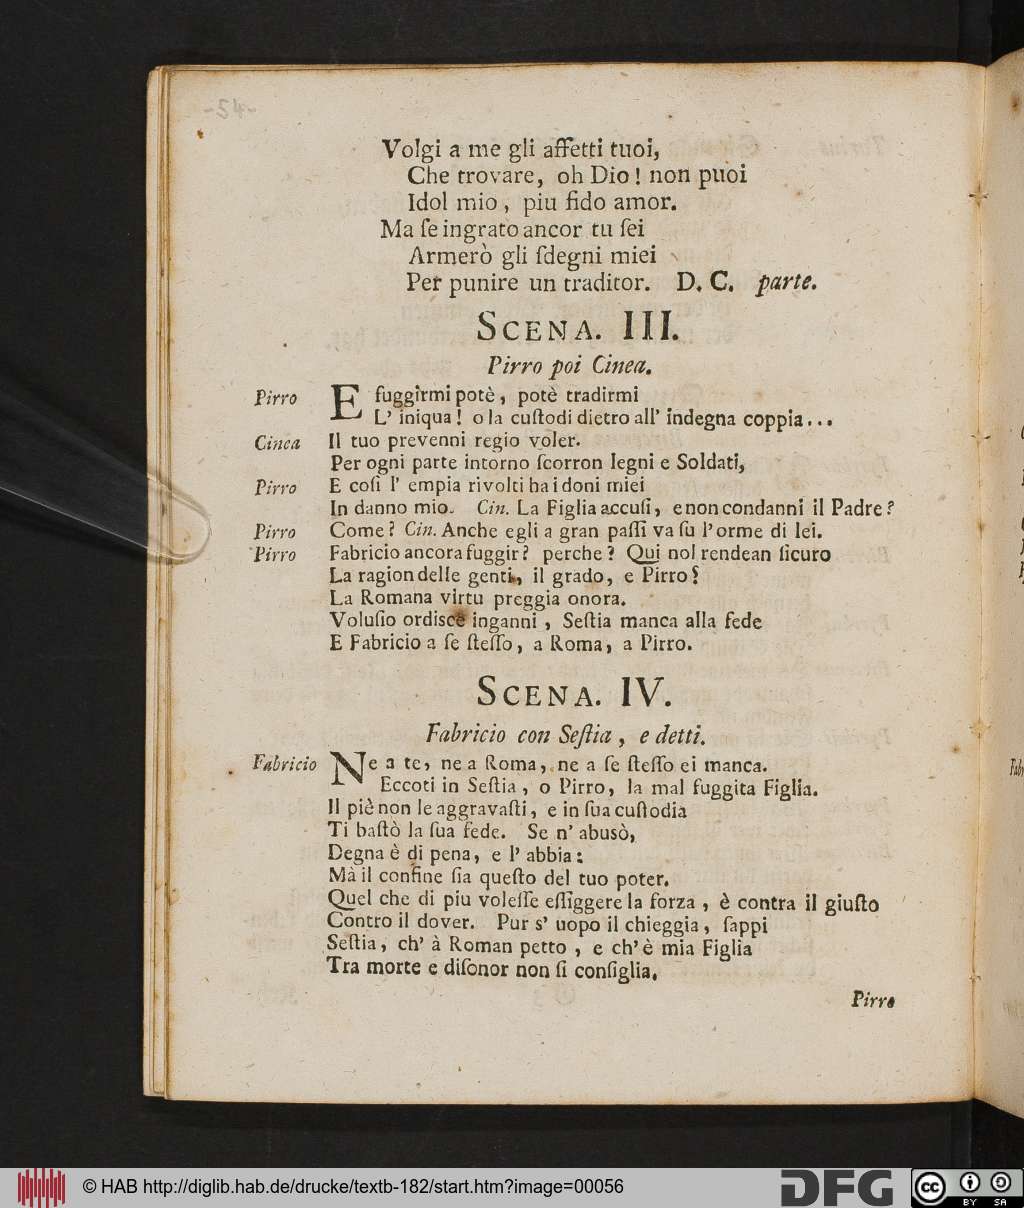 -54-
Volgi a me gli affetti tuoi,
Che trovare, oh Dio! non puoi
Idol mio, piu fido amor.
Ma ſe ingrato ancor tu ſei
Armerò gli ſdegni miei
Per punire un traditor. D. C. parte.
SCENA. III.
Pirro poi Cinea.
Pirro E fuggirmi potè, potè tradirmi
L' iniqua! o la cuſtodi dietro all' indegna coppia...
Cinea Il tuo prevenni regio voler.
Per ogni parte intorno ſcorron legni e Soldati,
Pirro E coſi l' empia rivolti ha i doni miei
In danno mio. Cin. La Figlia accuſi, e non condanni il Padre?
Pirro Come? Cin. Anche egli a gran paſſi va ſu l'orme di lei.
Pirro Fabricio ancora fuggir? perche? Qui nol rendean ſicuro
La ragion delle genti, il grado, e Pirro?
La Romana virtu preggia onora.
Voluſio ordiſce inganni, Seſtia manca alla fede
E Fabricio a ſe ſteſſo, a Roma, a Pirro.
SCENA. IV.
Fabricio con Seſtia, e detti.
Fabricio Ne a te, ne a Roma, ne a ſe ſteſſo ei manca.
Eccoti in Seſtia, o Pirro, la mal fuggita Figlia.
Il piè non le aggravaſti, e in ſua cuſtodia
Ti baſtò la ſua fede. Se n' abusò,
Degna è di pena, e l' abbia:
Mà il confine ſia queſto del tuo poter.
Quel che di piu voleſſe eſſiggere la forza, è contra il giuſto
Contro il dover. Pur s' uopo il chieggia, ſappi
Seſtia, ch' à Roman petto, e ch' è mia Figlia
Tra morte e diſonor non ſi conſiglia.
Pirro
© HAB http://diglib.hab.de/drucke/textb-182/start.htm?image=00056
DFG
cc BY SA